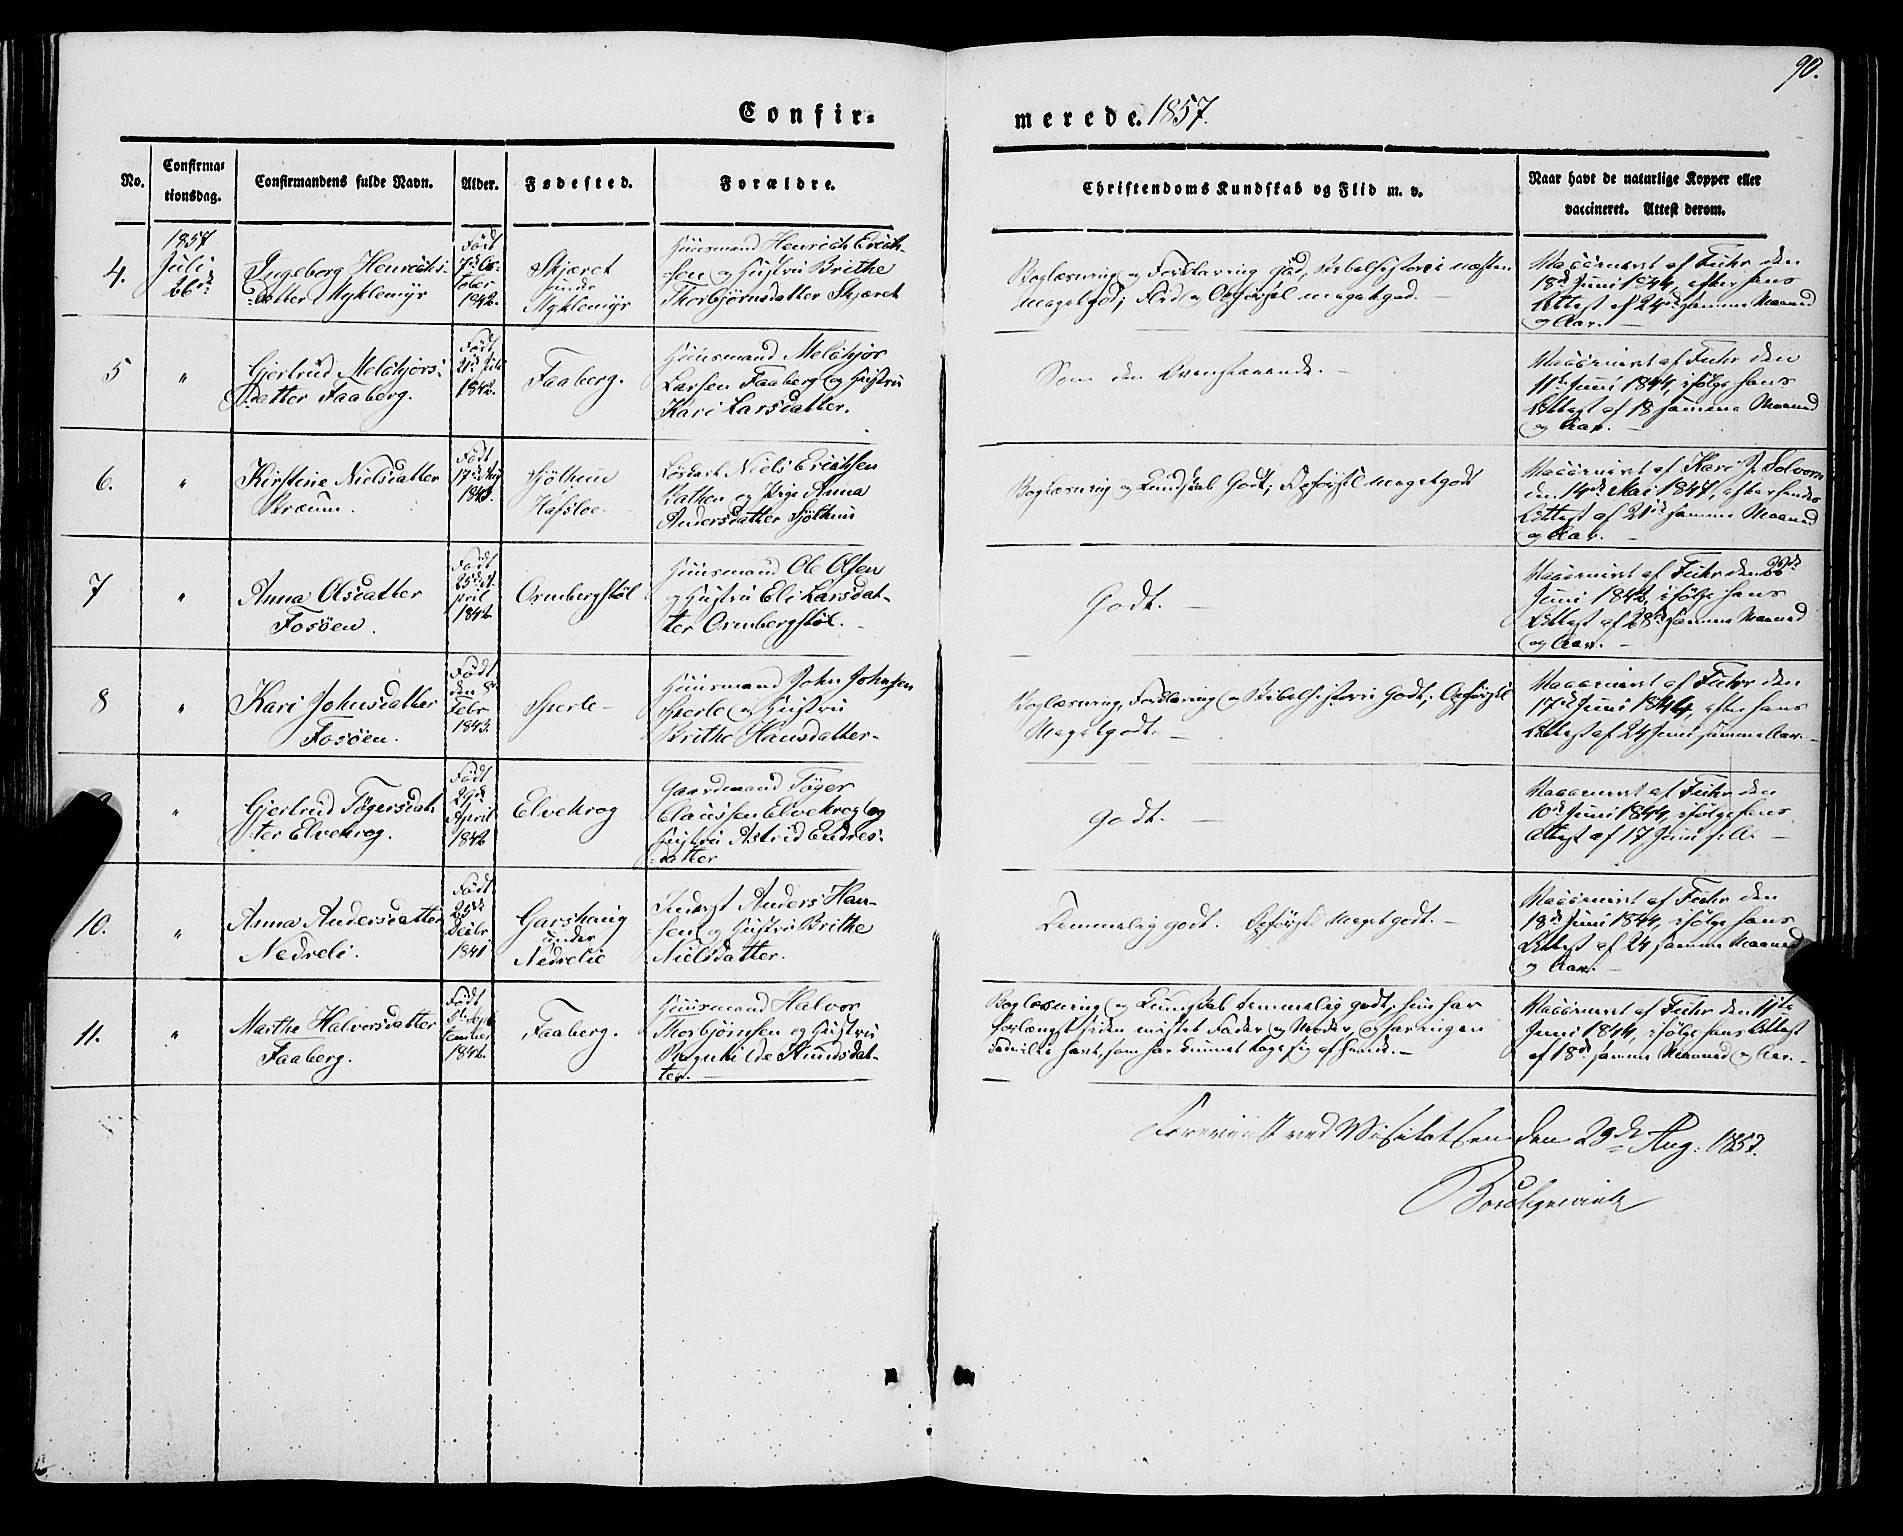 90.
Confir-
merede. 1857.
No.
Confirma-
tionsdag.
Confirmandens fulde Navn.
Alder.
Fødested.
Forældre.
Christendoms Kundskab og Flid m. v.
Naar havt de naturlige Kopper eller
vaccineret. Attest derom.
4.
1857
Juli
26de
Ingeborg Henrichs-
datter Myklemyr
Født
7de Oc-
tober
1842.
Skjæret
under
Myklemyr
Huusmand Henrich Erich-
sen og Hustru Brithe
Thorbjørnsdatter Skjæret
Boglæsning og Forklaring god, Bibelhistorie næsten
meget god; Flid og Opførsel meget god.
Vaccineret af Fuhr den
18de Juni 1844, efter hans
Attest af 24de samme Maaned
og Aar.
5
"
Gjertrud Melchjors-
datter Faaberg.
Født
21de Juli
1842.
Faaberg.
Huusmand Melchjor
Larsen Faaberg og Hustru
Kari Larsdatter.
Som den Ovenstaaende.
Vaccineret af Fuhr den
11te Juni 1844, ifølge hans
Attest af 18 samme Maaned
og Aar.
6.
"
Kirstine Nielsdatter
Kræum.
Født
17de
1843.
Sjølhun
Hafsloe
Niels Erichsen
og Pige Anna
Andersdatter Sjølhun
Boglæsning og Kundskab Godt; Opførsel Meget godt
Vaccineret af Kari J. Solvorn
den 14de Mai 1847, efter hendes
Attest af 21de samme Maaned
og Aar.
7
"
Anna Olsdatter
Fosøen.
Født
25de A-
pril
1842
Ormbergstøl
Huusmand Ole Olsen
og Hustru Eli Larsdat-
ter Ormbergstøl.
Godt.
Vaccineret af Fuhr den
Juni 1843, ifølge hans
Attest af 28de samme Maaned
og Aar.
8
"
Kari Johnsdatter
Fosøen.
Født
den 8de
Febr
1843.
Sperle
Huusmand John Johnsen
Sperle og Hustru
Brithe Hansdatter
Boglæsning, Forklaring og Bibelhistorie Godt; Opførsel
Meget godt.
Vaccineret af Fuhr den
17de Juni 1844, efter hans
Attest af 24 Juni samme Aar.
"
Gjertrud Tøgersdat-
ter Elvekrog.
Født
29de
April
1842
Elvekrog
Gaardmand Tøger
Claussen Elvekrog og
Hustru Astrid Endres-
datter
Godt.
Vaccineret af Fuhr den
10de Juni 1844, ifølge hans
Attest af 17 Juni s. A.
10.
"
Anna Andersdatter
Nedreli.
Født
25de
Decbr
1841
Garshaug
under
Nedrelie
Inderst Anders Han-
sen og Hustru Brithe
Nielsdatter.
Temmelig godt. Opførsel Meget godt.
Vaccineret af Fuhr den
18de Juni 1844, ifølge hans
Attest af 24 samme Maaned
og Aar.
11.
"
Marthe Halvorsdatter
Faaberg.
Født
Sep-
tember
1842.
Faaberg.
Huusmand Halvor
Thorbjørnsen og Hustru
Ragnhilde Knudsdat-
ter.
Boglæsning og Kundskab temmelig godt; hun har
forlængst siden mistet Fader og Moder, og har ingen
havt, som har kunnet tage sig af hende.
Vaccineret af Fuhr den 11te
Juni 1844, ifølge hans Attest
af 18de samme Maaned og Aar.
Foreviist ved Visitatsen den 29de Aug: 1857.